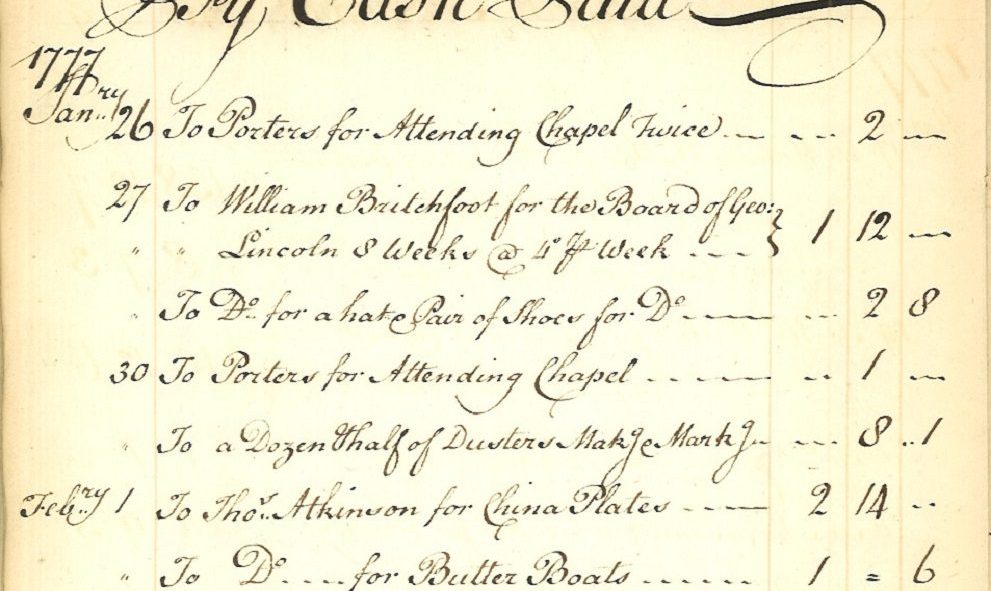 By Cash Paid
1777
Janry 26 To Porters for Attending Chapel Twice --- --- 2 --
27 To William Britchfoot for the Board of Geo: } 1 12 --
" " Lincoln 8 Weeks @ 4s ℔ Week ---
" To Do. for a hat & Pair of Shoes for Do ---- -- 2 8
30 To Porters for Attending Chapel ----- -- 1 --
" To a Dozen & half of Dusters Makg & Markg -- --- 8 .. 1
Febry 1 To Thos. Atkinson for China Plates ---- 2 14 ..
" To Do .... for Butter Boats ..... 1 = 6